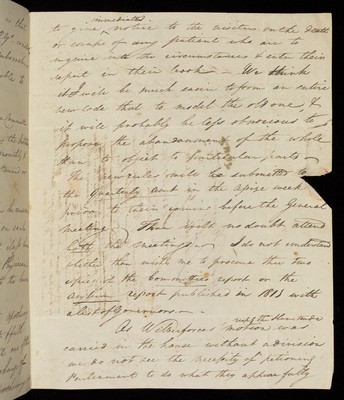 immediate
to give notice to the visitors on the death
or escape of any patient who are to
inquire into the circumstances & enter their
report in their book — We think
it will be much easier to form an entire
new code than to model the old one, &
it will probably be less obnoxious to
propose the abandonment of the whole
than to object to particular parts —
The new rules must be submitted to
the Quarterly Court in the assize week
previous to their coming before the General
meeting. They will no doubt attend
both the meetings — I do not understand
whether thou wish me to procure thee two
copies of the Committee's report or the
asylum report published in 1815 with
a list of Governors. —
As Wilberforce's motion was
carried in the house without a division
we do not see the necessity of petitioning
Parliament to do what they appear fully